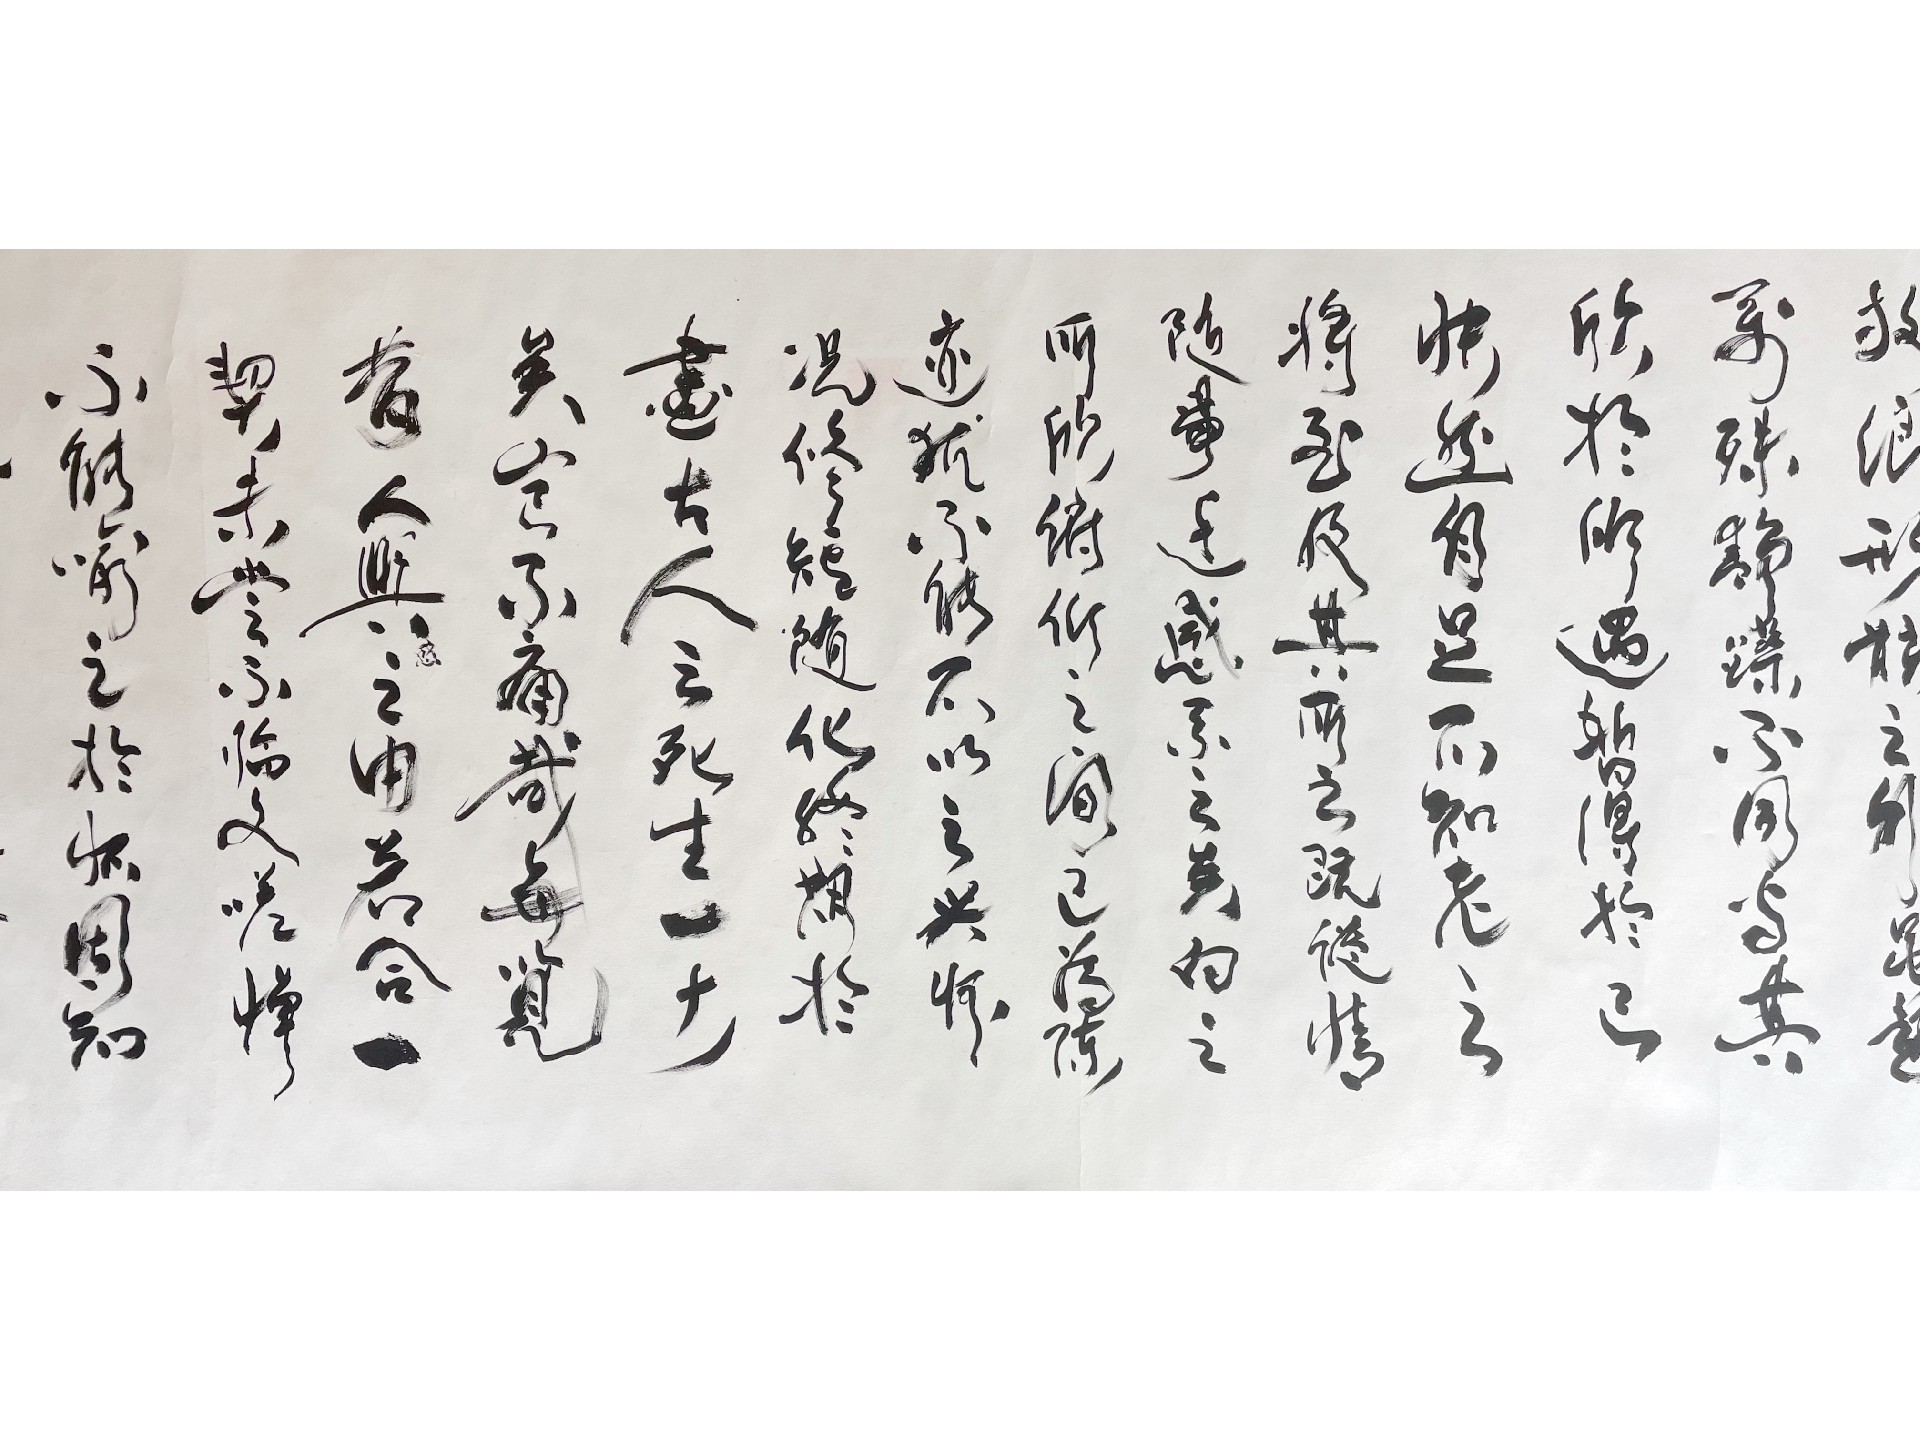 放浪形骸之外雖趣
萬殊靜躁不同當其
欣於所遇暫得於己
快然自足不知老之
將至及其所之既惓情
隨事迁感系之矣向之
所欣俯仰之間已為陳
迹猶不能不以之興懷
況修短隨化終期於
盡古人云死生一大
矣豈不痛哉每覽
昔人興感之由若合一
契未嘗不臨文嗟悼
不能喻之於懷固知